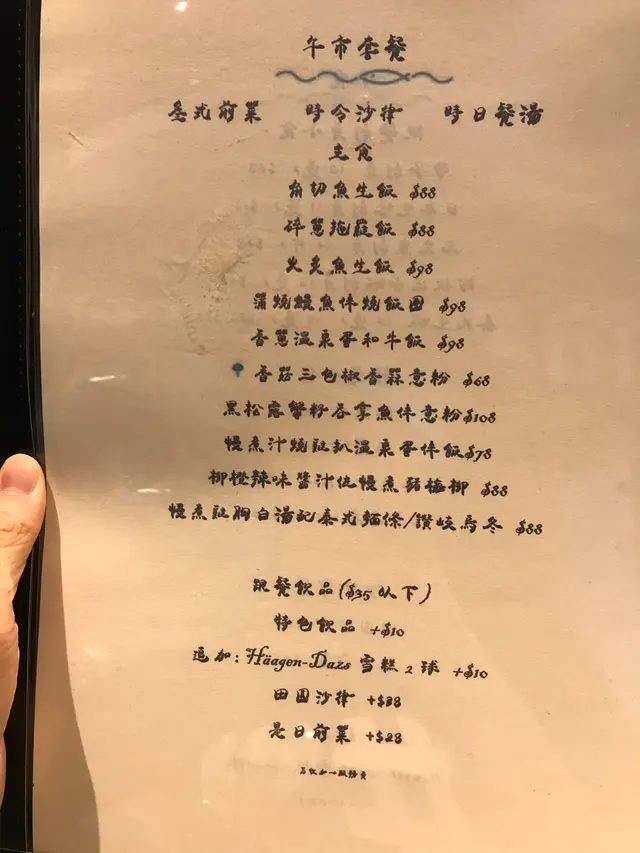 午市套餐
泰式前菜 時令沙律 時日餐湯
主食
角切魚生飯 $88
碎蔥拖蘿飯 $88
火炙魚生飯 $98
蒲燒鰻魚伴燒飯团 $98
香蔥温泉蛋和牛飯 $98
香菇三色椒香蒜意粉 $68
黑松露蟹籽吞拿魚伴意粉$108
慢煮汁燒豚扒温泉蛋伴飯$78
柳橙辣味醬汁伴慢煮豬梅柳 $88
慢煮豚胸白湯配泰式麵條/讚岐烏冬 $88
跟餐飲品 ($35 以下)
特色飲品 +$10
追加: Häagen-Dazs 雪糕 2 球 +$10
田园沙律 +$38
是日前菜 +$28
另收加一服務費